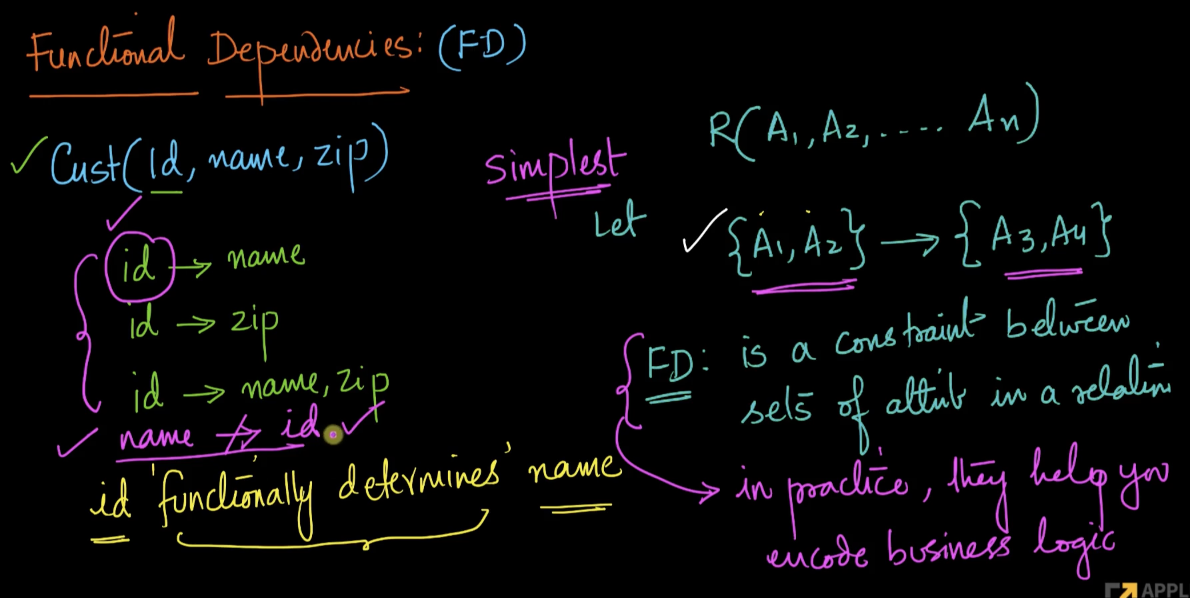 Functional Dependencies: (FD)
✓ Cust(id, name, zip)
id → name
id → zip
id → name, zip
name ↛ id
id 'functionally determines' name
simplest
R(A₁, A₂, .... An)
Let {A₁, A₂} → {A₃, A₄}
FD: is a constraint between
sets of attrib in a relation
→ in practice, they help you
encode business logic
APPL